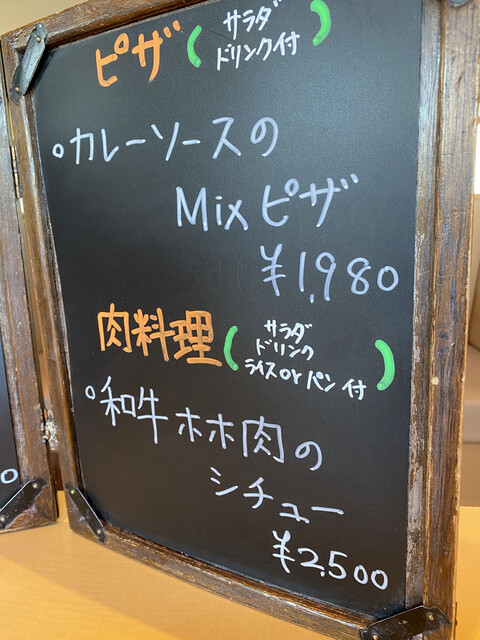 ピザ(サラダ
ドリンク付)
○カレーソースの
Mixピザ
¥1,980
肉料理(サラダ
ドリンク
ライスorパン付)
○和牛ホホ肉の
シチュー
¥2,500